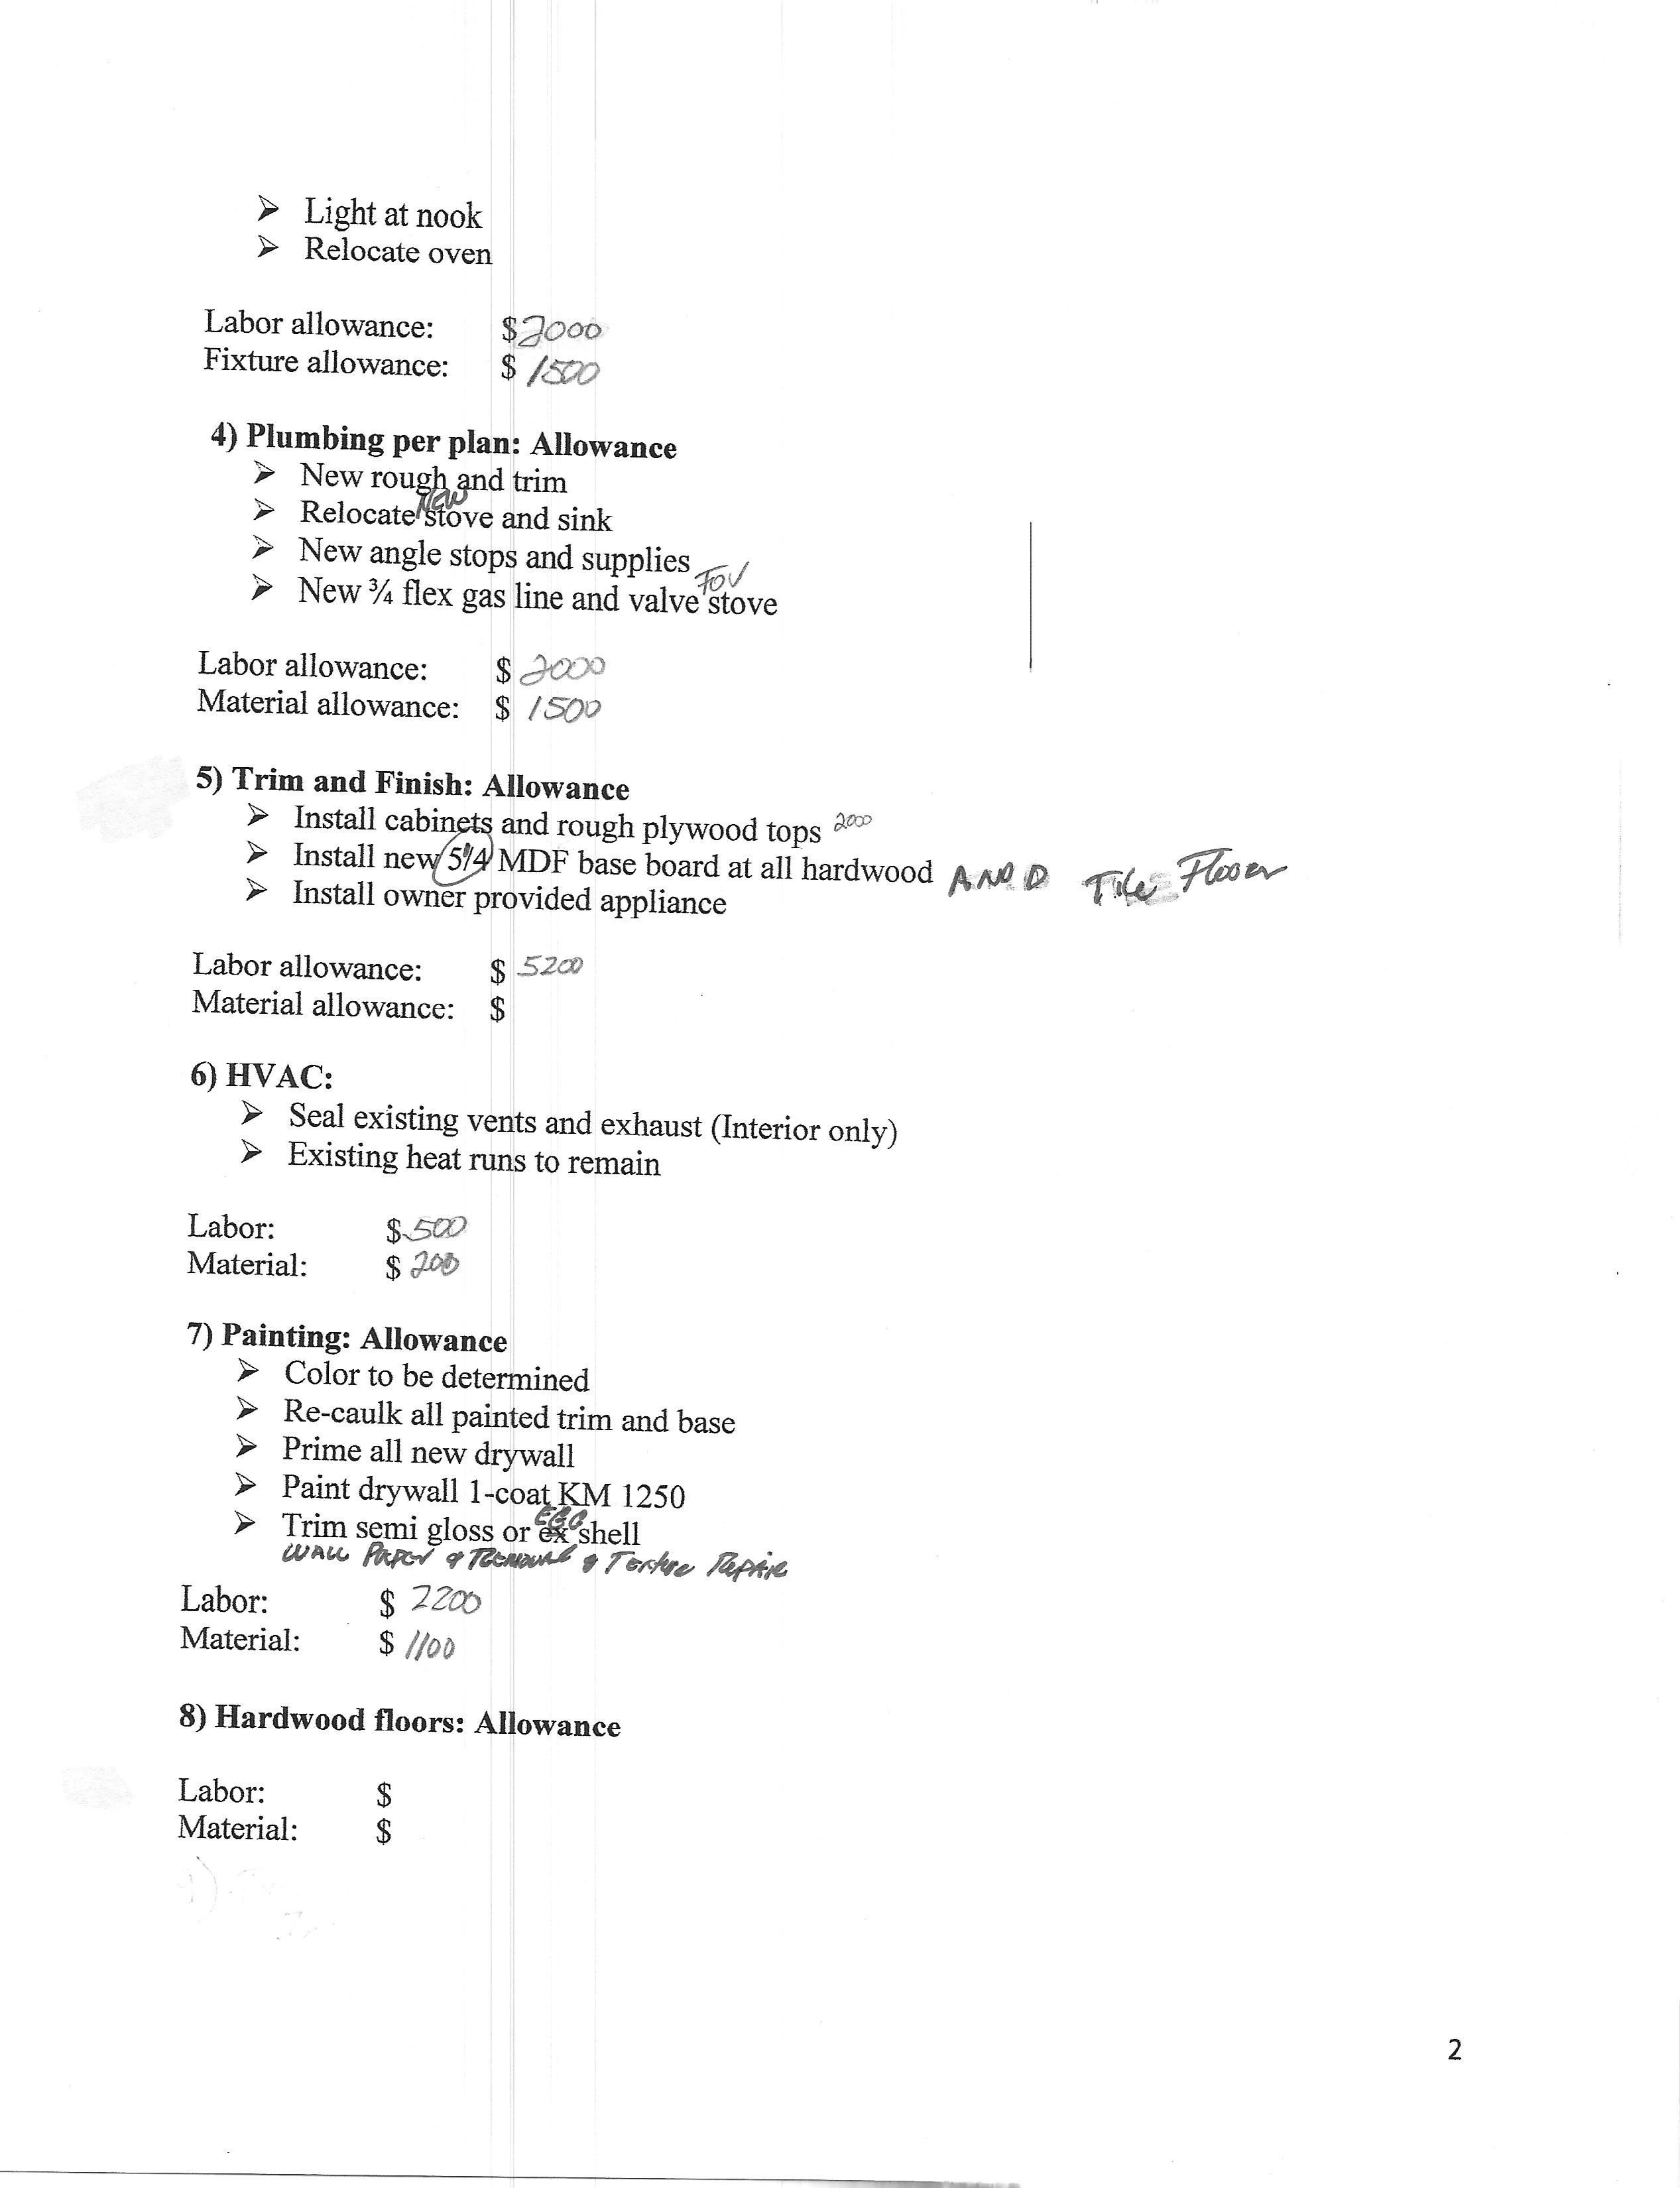 ➢ Light at nook
➢ Relocate oven
Labor allowance: $2000
Fixture allowance: $ 1500
4) Plumbing per plan: Allowance
➢ New rough and trim
NEW
➢ Relocate stove and sink
➢ New angle stops and supplies
FOr
➢ New ¾ flex gas line and valve stove
Labor allowance: $ 2000
Material allowance: $ 1500
5) Trim and Finish: Allowance
➢ Install cabinets and rough plywood tops 2000
➢ Install new 5"/4 MDF base board at all hardwood AND Tile Floor
➢ Install owner provided appliance
Labor allowance: $ 5200
Material allowance: $
6) HVAC:
➢ Seal existing vents and exhaust (Interior only)
➢ Existing heat runs to remain
Labor: $ 500
Material: $ 200
7) Painting: Allowance
➢ Color to be determined
➢ Re-caulk all painted trim and base
➢ Prime all new drywall
➢ Paint drywall 1-coat KM 1250
EGG
➢ Trim semi gloss or ex shell
WALL PAPER & REMOVAL & Texture REPAIR
Labor: $ 2200
Material: $ 1100
8) Hardwood floors: Allowance
Labor: $
Material: $
2